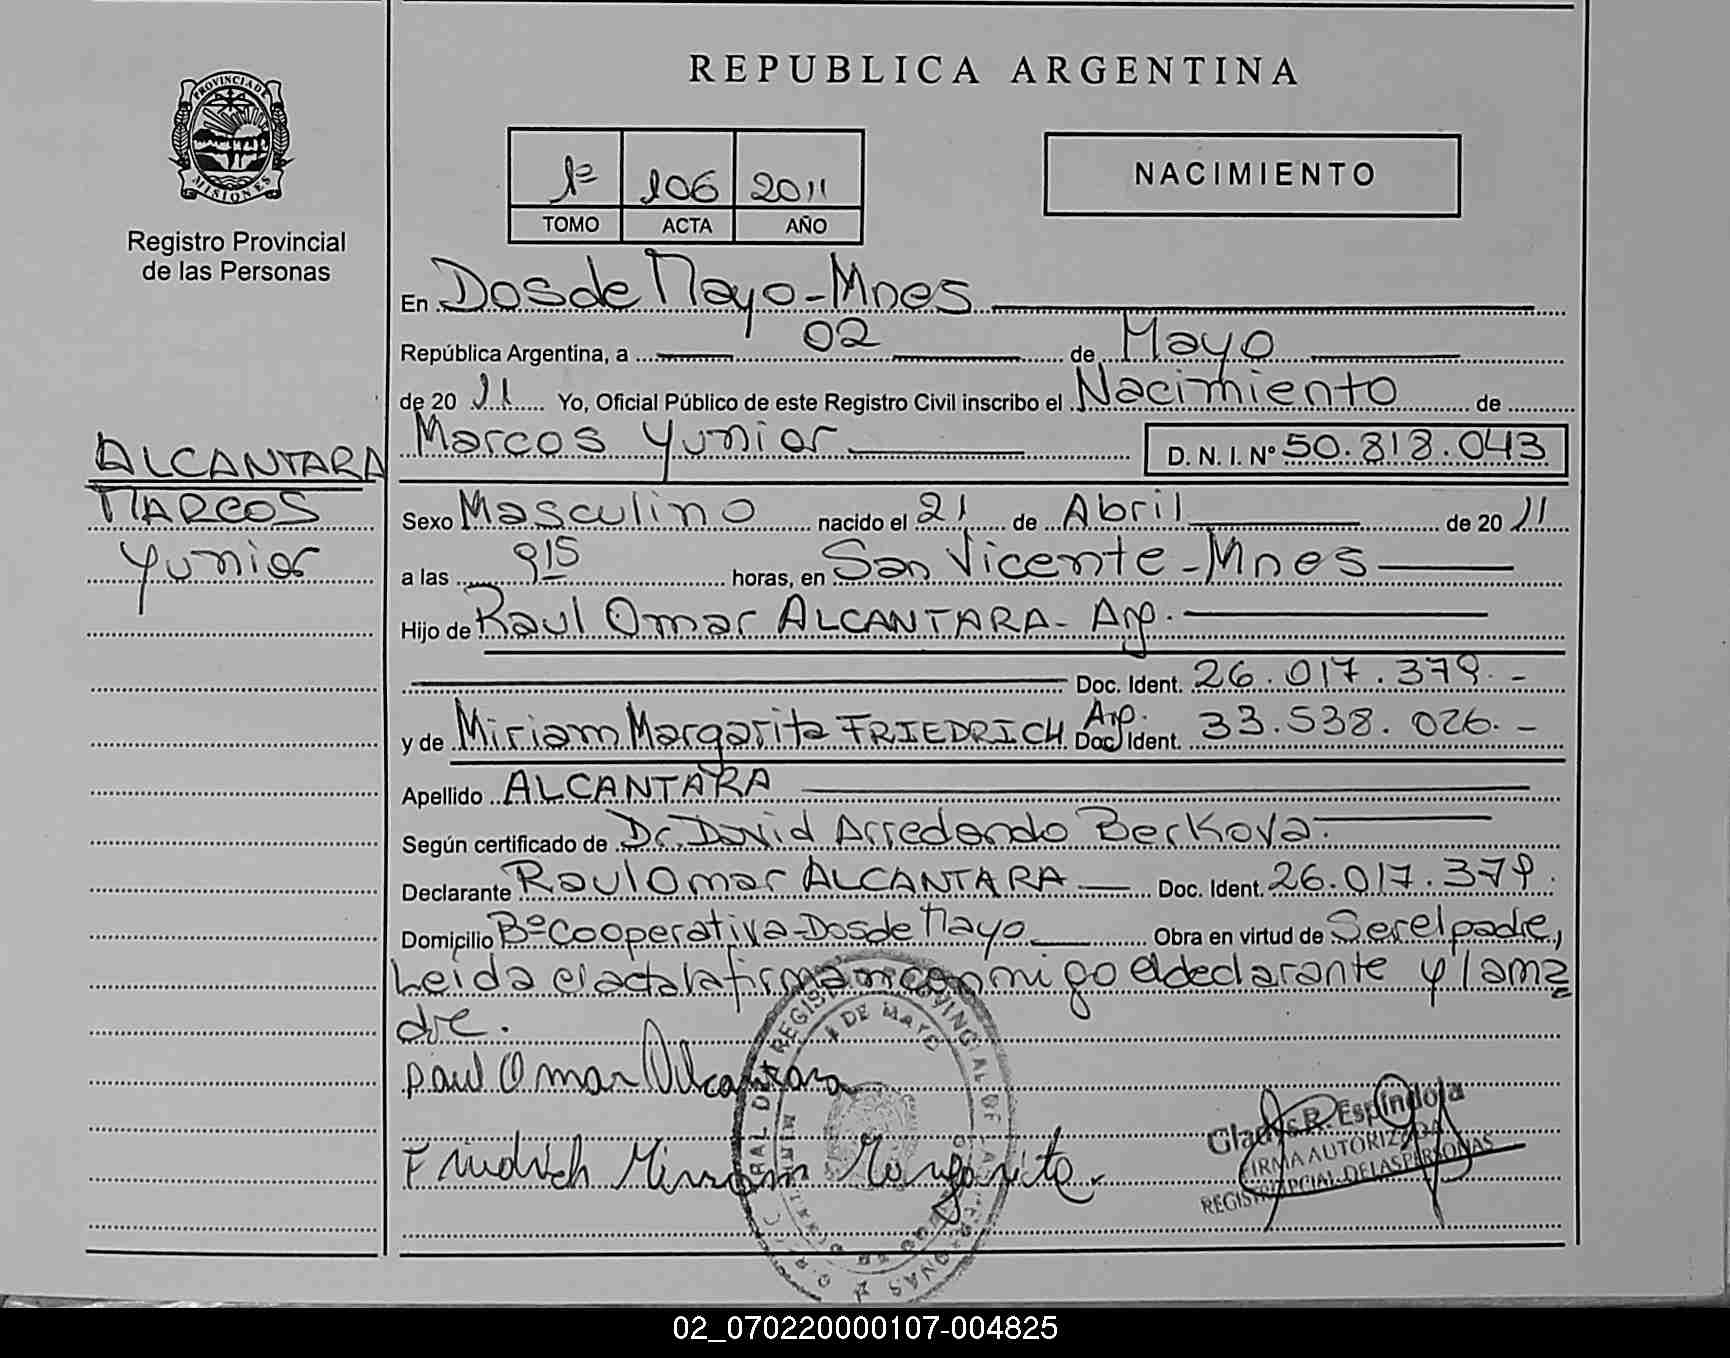 PROVINCIA DE
MISIONES
Registro Provincial
de las Personas
ALCANTARA
MARCOS
Yunior
REPUBLICA ARGENTINA
1º 106 2011
TOMO ACTA AÑO
NACIMIENTO
En Dos de Mayo-Mnes
República Argentina, a 02 de Mayo
de 20 11 Yo, Oficial Público de este Registro Civil inscribo el Nacimiento de
Marcos Yunior D. N. I. Nº 50.818.043
Sexo Masculino nacido el 21 de Abril de 20 11
a las 915 horas, en San Vicente-Mnes
Hijo de Raul Omar ALCANTARA- Arg.
Doc. Ident. 26.017.379.-
y de Miriam Margarita FRIEDRICH Arg. Doc. Ident. 33.538.026.-
Apellido ALCANTARA
Según certificado de Dr. David Arredondo Berkova.
Declarante Raul Omar ALCANTARA Doc. Ident. 26.017.379.
Domicilio Bº Cooperativa-Dos de Mayo Obra en virtud de Ser el padre,
Leida el acta la firman conmigo el declarante y la ma
dre.
Raul Omar Alcantara
Friedrich Miriam Margarita.
Gladys R. Espíndola
FIRMA AUTORIZADA
REGISTRO PCIAL. DE LAS PERSONAS
02_070220000107-004825